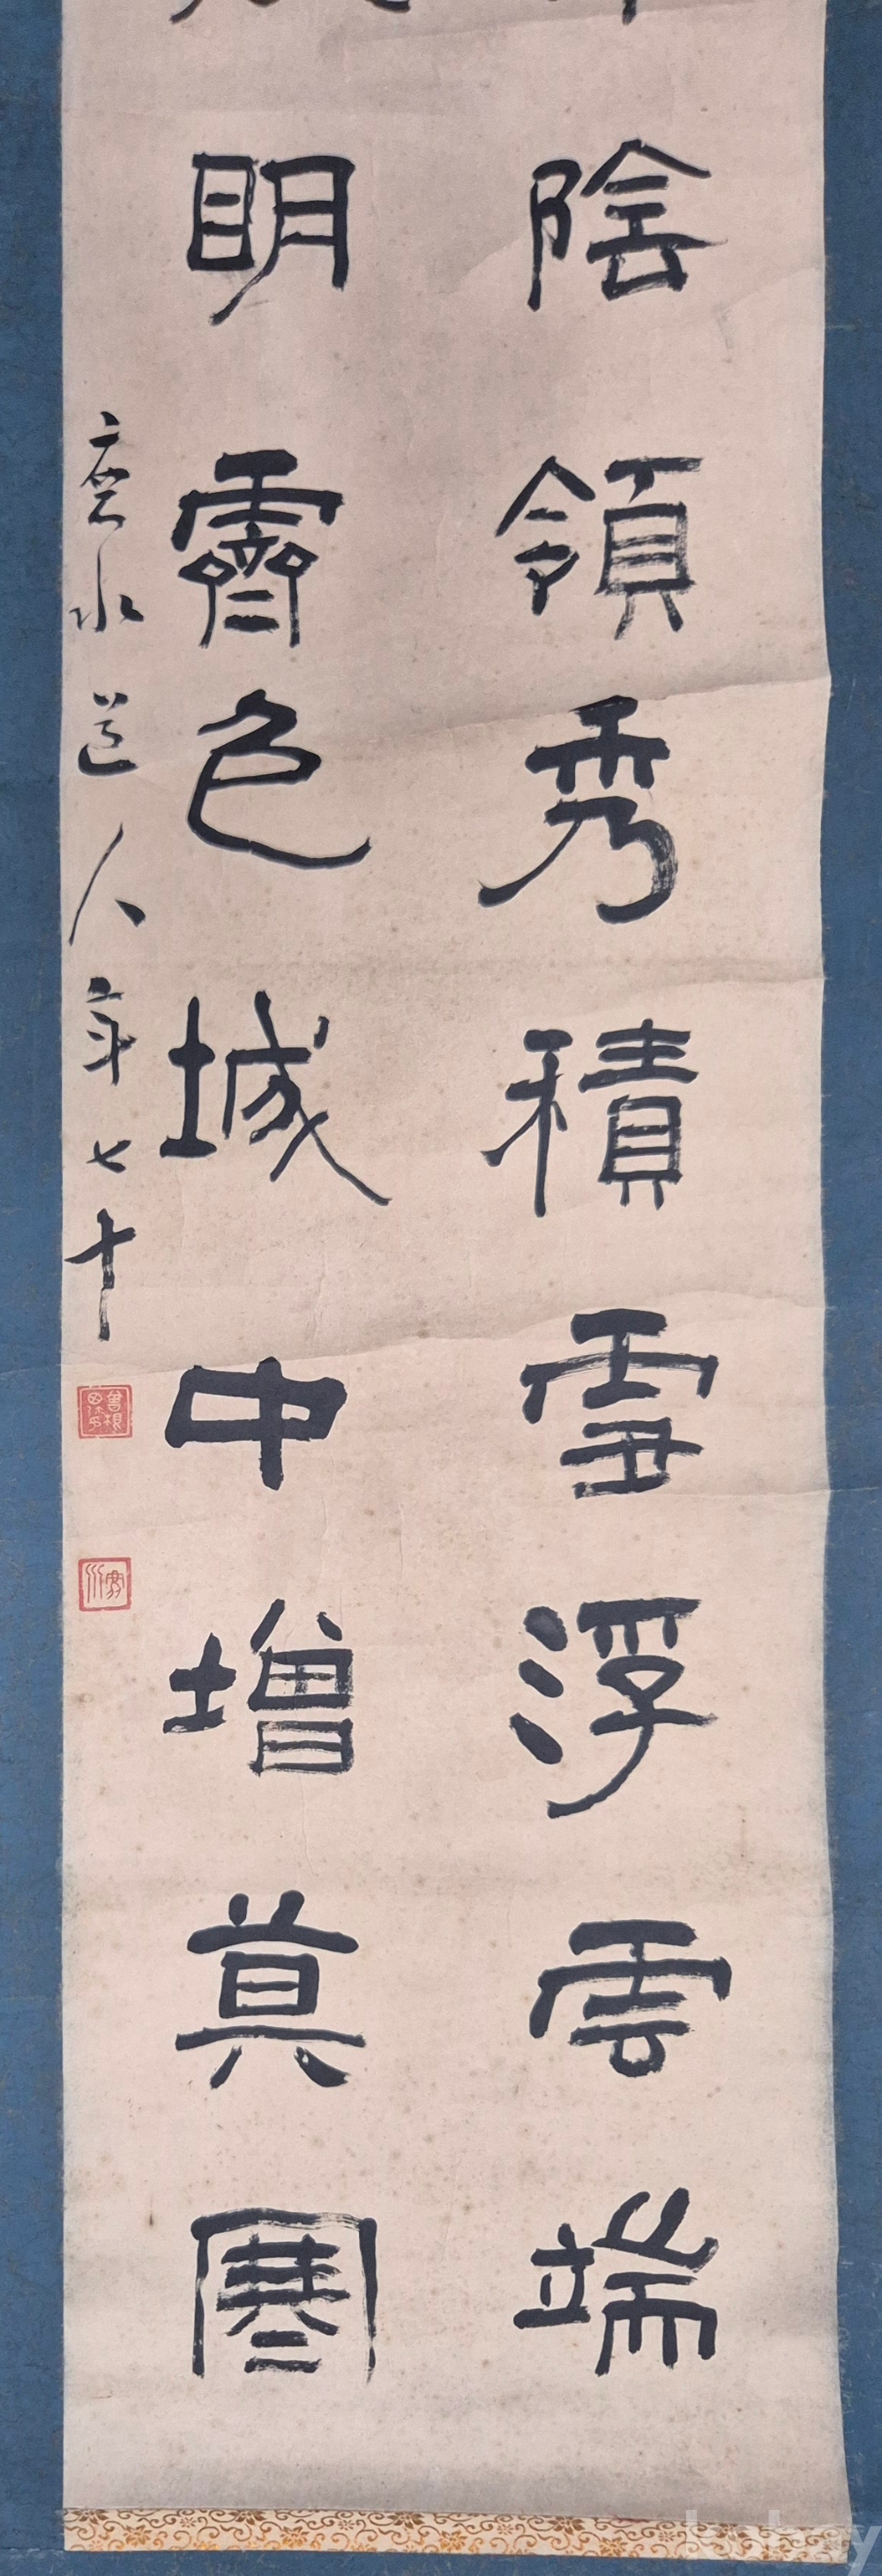 陰領秀積雪浮雲端
眀霽色城中增莫寒
水道人年七十